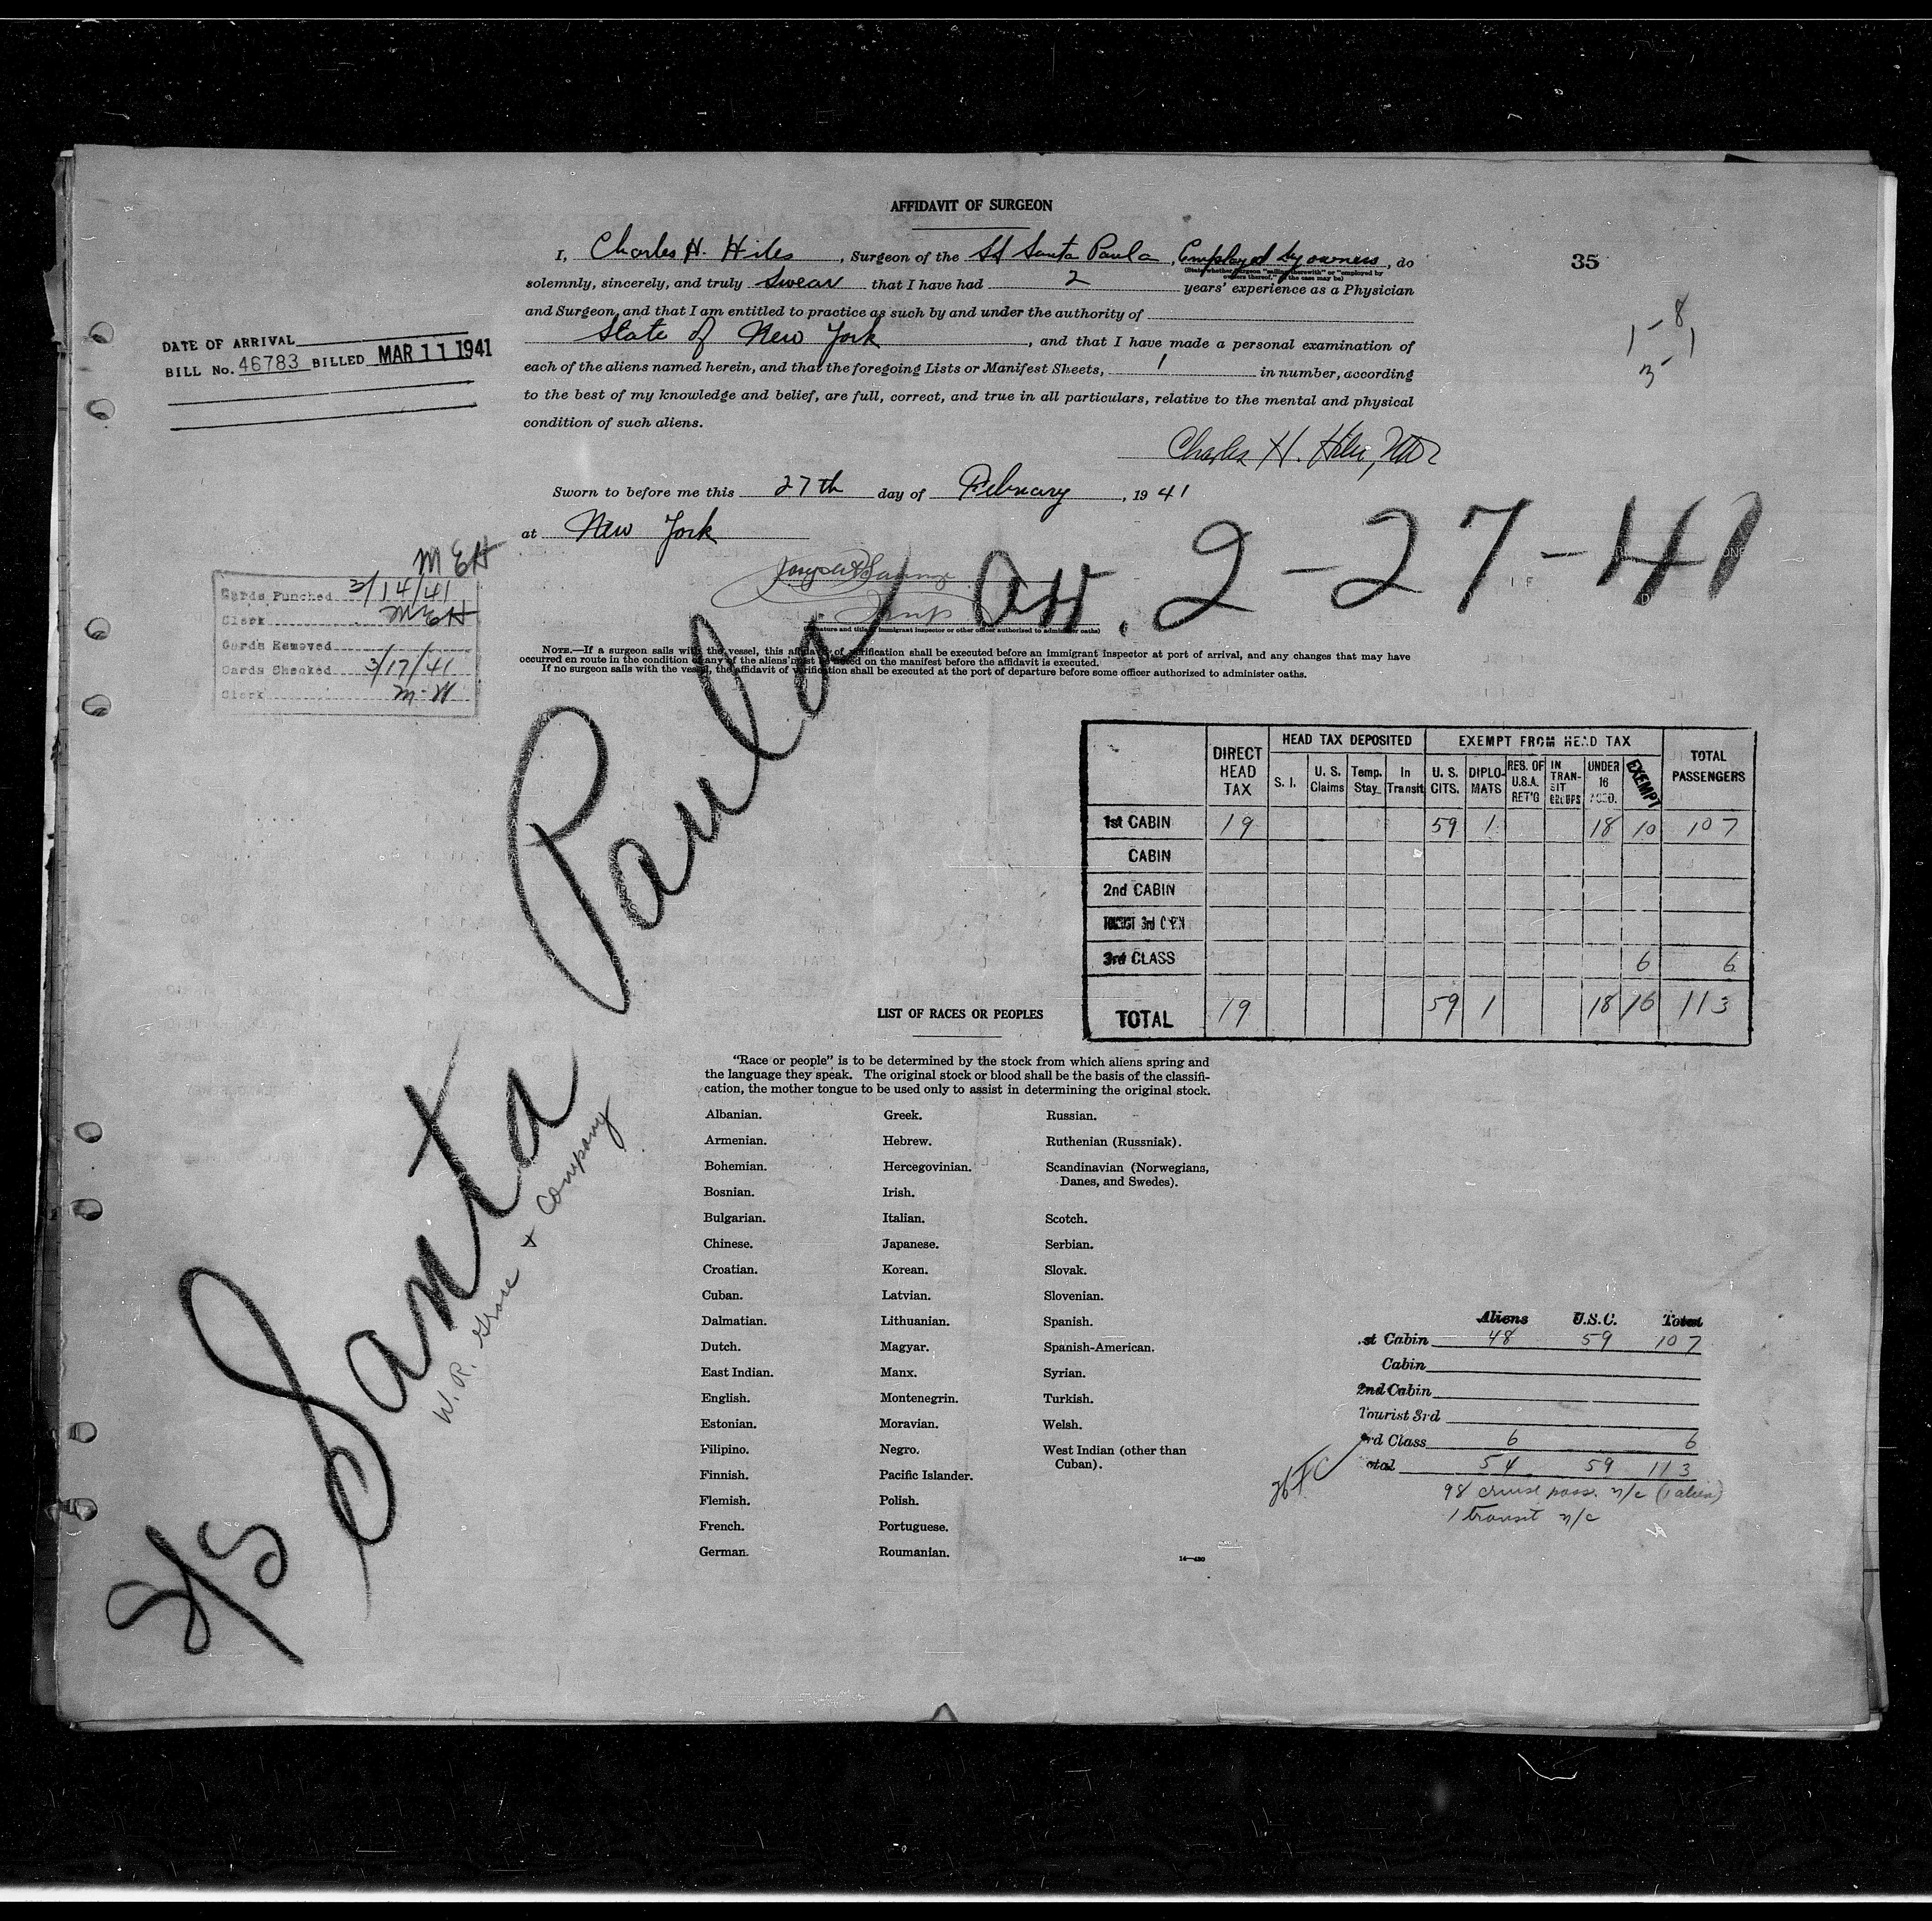 AFFIDAVIT OF SURGEON
35
I, Charles H. Hiles, Surgeon of the SS Santa Paula, Employed by owners, do
(State whether surgeon "sailing therewith" or "employed by
owners thereof," as the case may be)
solemnly, sincerely, and truly swear that I have had 2 years' experience as a Physician
and Surgeon, and that I am entitled to practice as such by and under the authority of
State of New York, and that I have made a personal examination of
each of the aliens named herein, and that the foregoing Lists or Manifest Sheets, 1 in number, according
to the best of my knowledge and belief, are full, correct, and true in all particulars, relative to the mental and physical
condition of such aliens.
Charles H. Hiles, MD
Sworn to before me this 27th day of February, 1941
at New York
Insp
(Signature and title of immigrant inspector or other officer authorized to administer oaths)
NOTE.—If a surgeon sails with the vessel, this affidavit of verification shall be executed before an immigrant inspector at port of arrival, and any changes that may have
occurred en route in the condition of any of the aliens must be noted on the manifest before the affidavit is executed.
If no surgeon sails with the vessel, the affidavit of verification shall be executed at the port of departure before some officer authorized to administer oaths.
1-8
1
3-
DATE OF ARRIVAL
BILL No. 46783 BILLED MAR 11 1941
MEH
Cards Punched 3/14/41
Clerk MEH
Cards Removed
Cards Checked 3/17/41
Clerk M-W
S/S Santa Paula arr. 2-27-41
W. R. Grace & Company
DIRECT HEAD TAX
HEAD TAX DEPOSITED
EXEMPT FROM HEAD TAX
TOTAL PASSENGERS
S. I. U. S. Claims Temp. Stay In Transit U. S. CITS. DIPLO-MATS RES. OF U.S.A. RET'G IN TRAN-SIT GROUPS UNDER 16 ACCD. EXEMPT
1st CABIN 19 59 1 18 10 107
CABIN
2nd CABIN
TOURIST 3rd CABIN
3rd CLASS 6 6
TOTAL 19 59 1 18 16 113
LIST OF RACES OR PEOPLES
"Race or people" is to be determined by the stock from which aliens spring and
the language they speak. The original stock or blood shall be the basis of the classifi-
cation, the mother tongue to be used only to assist in determining the original stock.
Albanian.
Armenian.
Bohemian.
Bosnian.
Bulgarian.
Chinese.
Croatian.
Cuban.
Dalmatian.
Dutch.
East Indian.
English.
Estonian.
Filipino.
Finnish.
Flemish.
French.
German.
Greek.
Hebrew.
Hercegovinian.
Irish.
Italian.
Japanese.
Korean.
Latvian.
Lithuanian.
Magyar.
Manx.
Montenegrin.
Moravian.
Negro.
Pacific Islander.
Polish.
Portuguese.
Roumanian.
Russian.
Ruthenian (Russniak).
Scandinavian (Norwegians,
Danes, and Swedes).
Scotch.
Serbian.
Slovak.
Slovenian.
Spanish.
Spanish-American.
Syrian.
Turkish.
Welsh.
West Indian (other than
Cuban).
14—430
Aliens U.S.C. Total
st Cabin 48 59 107
Cabin
2nd Cabin
Tourist 3rd
rd Class 6 6
otal 54 59 113
98 cruise pass. n/c (1 alien)
1 transit n/c